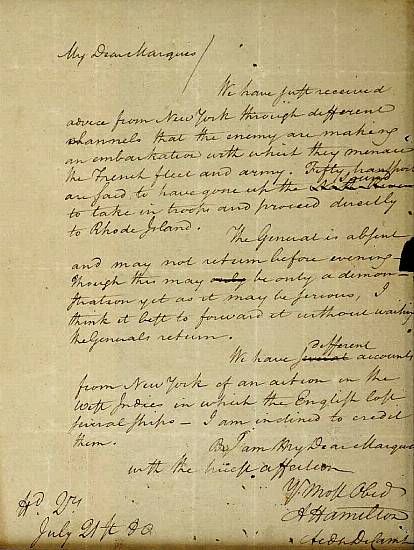 My Dear Marquis/
We have just received
advice from New York through different
channels that the enemy are making
an embarkation with which they menace
the French fleet and army. Fifty transports
are said to have gone up the Sound
to take in troops and proceed directly
to Rhode Island.
The General is absent
and may not return before evening –
Though this may only be only a demon-
stration yet as it may be serious, I
think it best to forward it without waiting
the Generals return.
different
We have several accounts
from New York of an action in the
West Indies in which the English lost
several ships – I am inclined to credit
them.
I am My Dear Marquis
with the truest affection
Yr. Most Obed
A Hamilton
Aide De Camp
Hd Qrs
July 21st 80